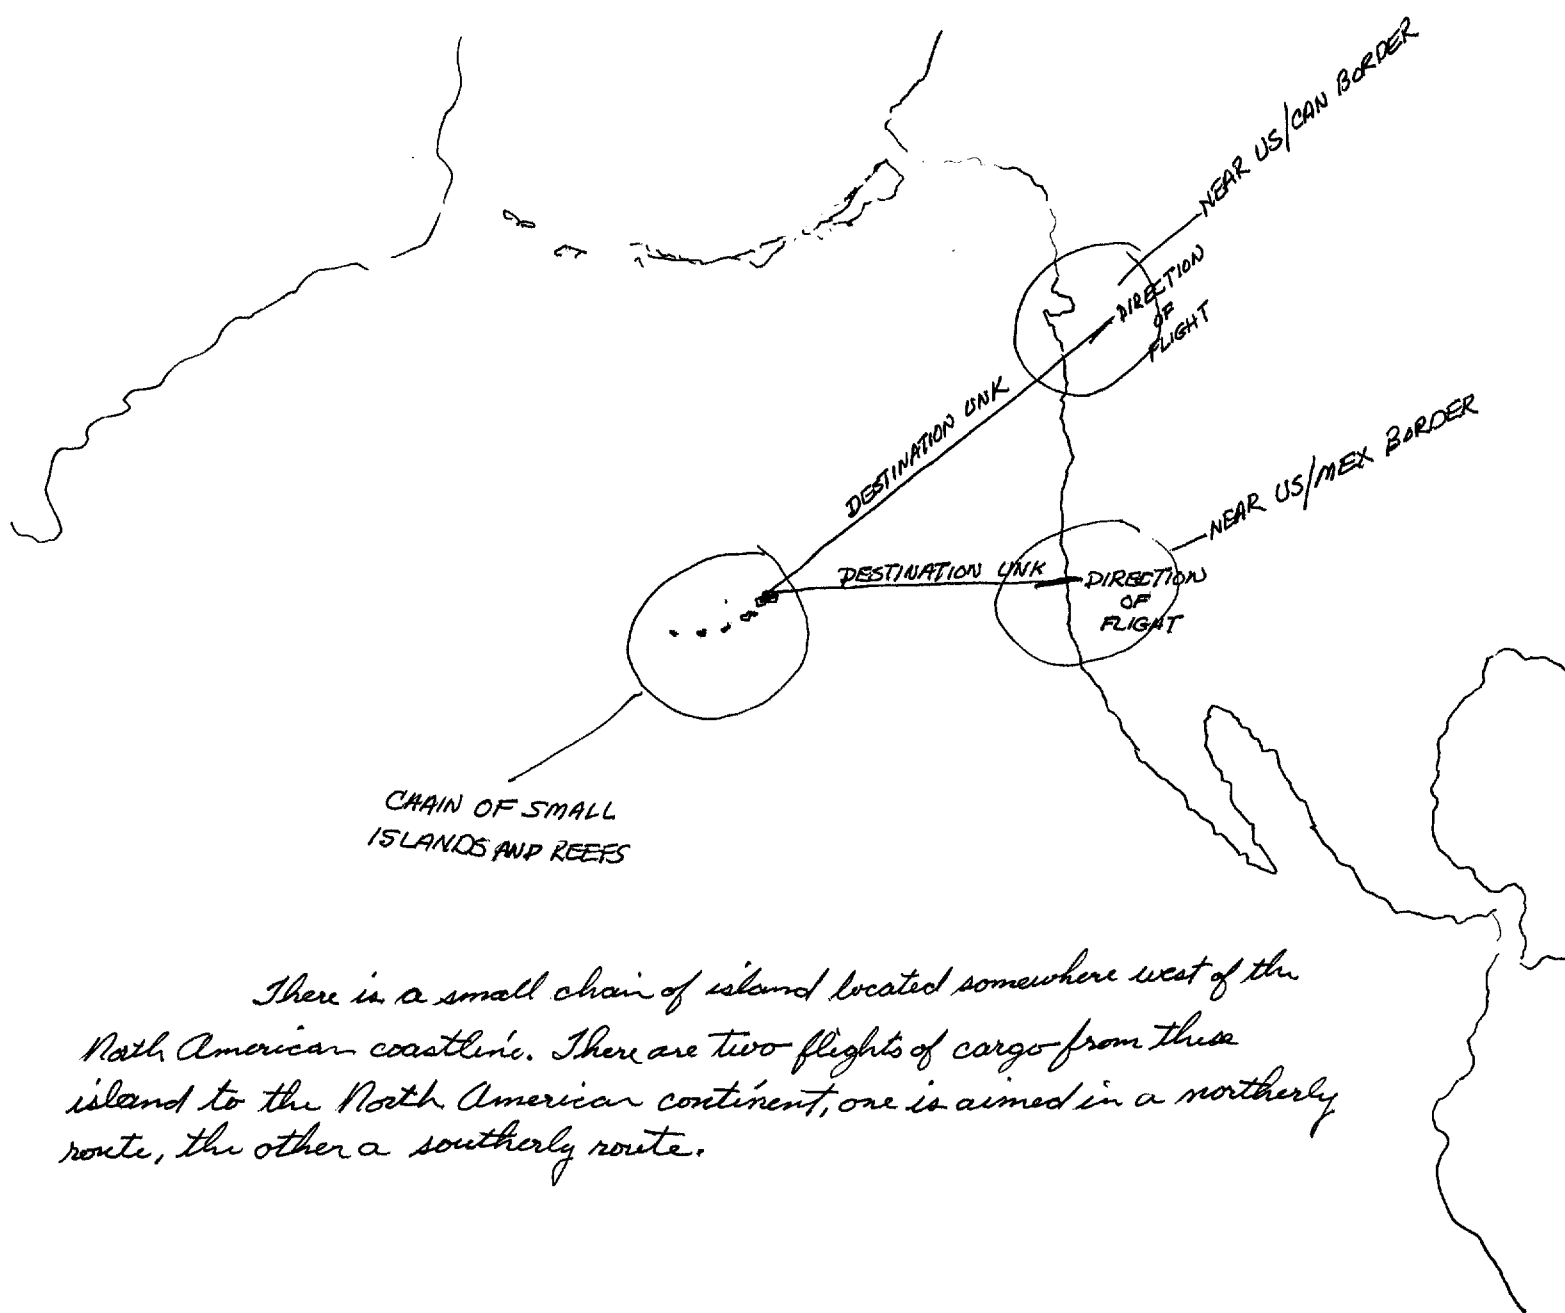 NEAR US/CAN BORDER
DIRECTION
OF
FLIGHT
DESTINATION UNK
NEAR US/MEX BORDER
DESTINATION UNK
DIRECTION
OF
FLIGHT
CHAIN OF SMALL
ISLANDS AND REEFS
There is a small chain of island located somewhere west of the
North American coastline. There are two flights of cargo from these
island to the North American continent, one is aimed in a northerly
route, the other a southerly route.